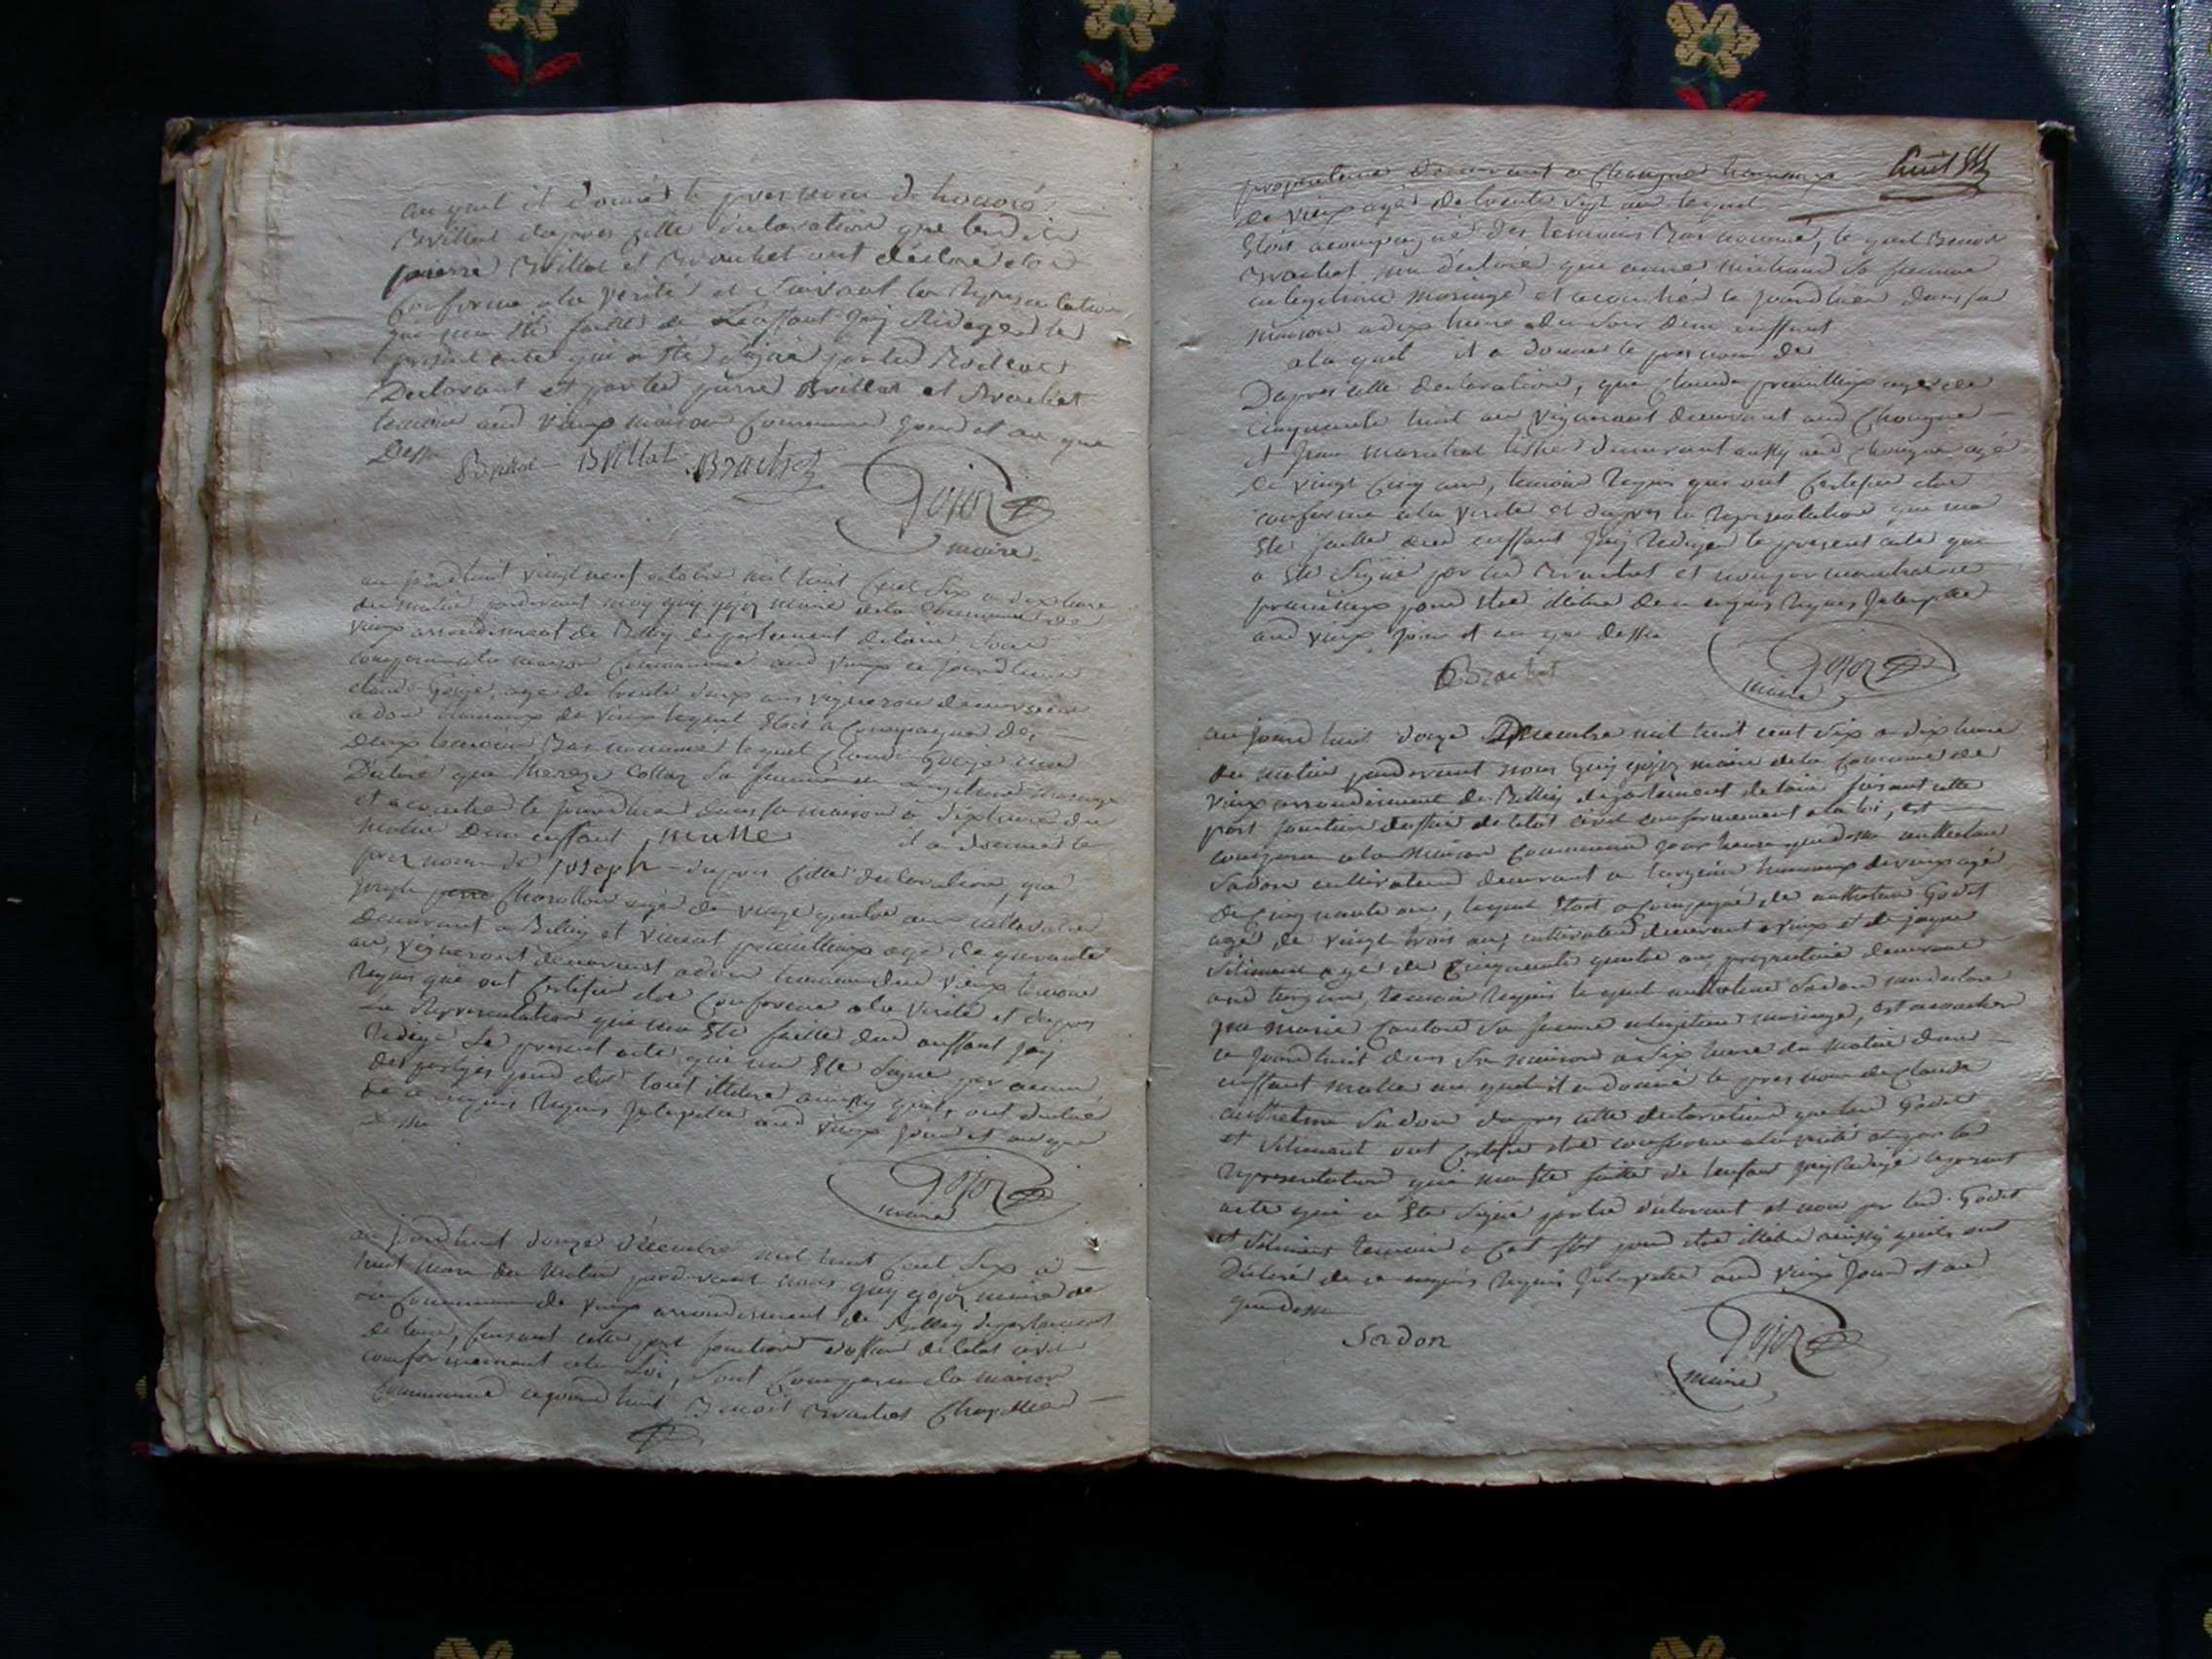 au quel il donné le pres nom de honoré
Brillat dapres cette declaration que lesdits
pierre Brillat et Brachet ont déclaré etre
conforme ala verité et suivant la representation
que ma été faitte de Lenffant jai Redigé le
présent acte qui a Ste Signé par led Brillat
Declarant et par led pierre Brillat et Brachet
temoins aud Vieux maison commune jour et an que
Dessu
Brillat Brillat Brachet
Gojoz
maire
au jourdhuit vingt neuf octobre mil huit Cent Six a dix heure
du matin pardevant moy guy gojoz maire dela Commune de
Vieux arrondissement de Belley departement delain sont
comparu ala maison Commune aud Vieux ce jourdhuit
claude Goije agé de trente deux ans vigneron demeurant
a don hameaux de Vieux lequel Etoit a Compagné de
Deux temoins Bas nommé lequel Claude Goije ma
Déclaré que thereze Collaz Sa femme en legitime mariage
et acouché le jourdhuit dans sa maison a Sixheure du
matin Dun enffant malle il a donné le
prez nom de Joseph dapres cette declaration, que
joseph agé de vingt quatre ans cultivateur
demeurant a Belley et Vincent agé de quarante
an, vigneront demeurant adon hameau dud Vieux temoins
Requis que ont Certifier etre Conforme ala Verité et dapres
La Representation que ma Ste faitte dud anffant jai
Redigé Le present acte qui na Ste Signé par aucun
des parties pour etre tout illitere ainssy quils ont declaré
de ce enquis Requis Jnterpellé aud Vieux jour et an que
Dessu
Gojoz
maire
au jourdhuit douze décembre mil huit Cent Six a
huit heure du Matin pardevant nous guy gojoz maire de
la Commune de Vieux arrondissement de Belley departement
De lain, faisant cette part fonction doffier deletat civil
conformement ala Loi, Sont Comparu ala maison
Commune ce jourdhuit Benoit Brachet Chapellier
huit
propriétaire demeurant a Chongne hameaux
de Vieux agé de trente sept ans lequel
Etoit acompagné des temoins Bas nommé, le quel Benoit
Brachet ma déclaré que anne michaud Sa femme
en legitime mariage et acouché le jourdhier dans sa
maison a dix heure du Soir dun enffant
ala quel il a donner le pres nom de
Dapres cette declaration, que Claude agé de
cinquante huit ans Vigneront demeurant aud Chongne
et jean marechal demeurant aussy aud Chongne agé
de vingt Cinq ans, temoins Requis que ont Certifier etre
conforme ala Verité et dapres la Representation que ma
Ste faitte dud enffant jai Redigé le present acte qui
a Ste Signé par led Brachet et non par marechal ni
pour etre illitere de ce enquis Requis Jnterpellé
aud Vieux jour et an que dessu
Brachet
Gojoz
maire
au jourdhuit douze Decembre mil huit cent Six a dix heure
du matin pardevant nous Guy gojoz maire dela Commune de
Vieux arrondissement de Belley departement delain faisant cette
part fonction doffier deletat civil conformement ala loi, est
comparu ala maison Commune jour heure que dessu anthelme
Sadon cultivateur demeurant a hameaux de vieux agé
de Cinquante ans, lequel Etoit acompagné de anthelme Godet
agé de vingt trois ans, cultivateur demeurant a vieux et de
agé de Cinquante quatre ans, propriétaire demeurant
aud, temoins Requis lequel anthelme Sadon ma declaré
que marie Sa femme en legitime mariage, est acouchée
ce jourdhuit dans Sa maison a Six heure du Matin dun
enffant malle au quel il a donné le pres nom de Claude
anthelme Sadon dapres cette declaration que led Godet
et ont Certifier etre conforme ala verité et par la
Representation que ma Ste faitte de lenfant jai Redigé le present
acte qui a Ste Signé par led declarant et non par led Godet
et temoins a Cet effet pour etre illitere ainssy quils ont
Déclaré de ce enquis Requis Jnterpellé aud Vieux jour et an
que dessu
Sordon
Gojoz
maire